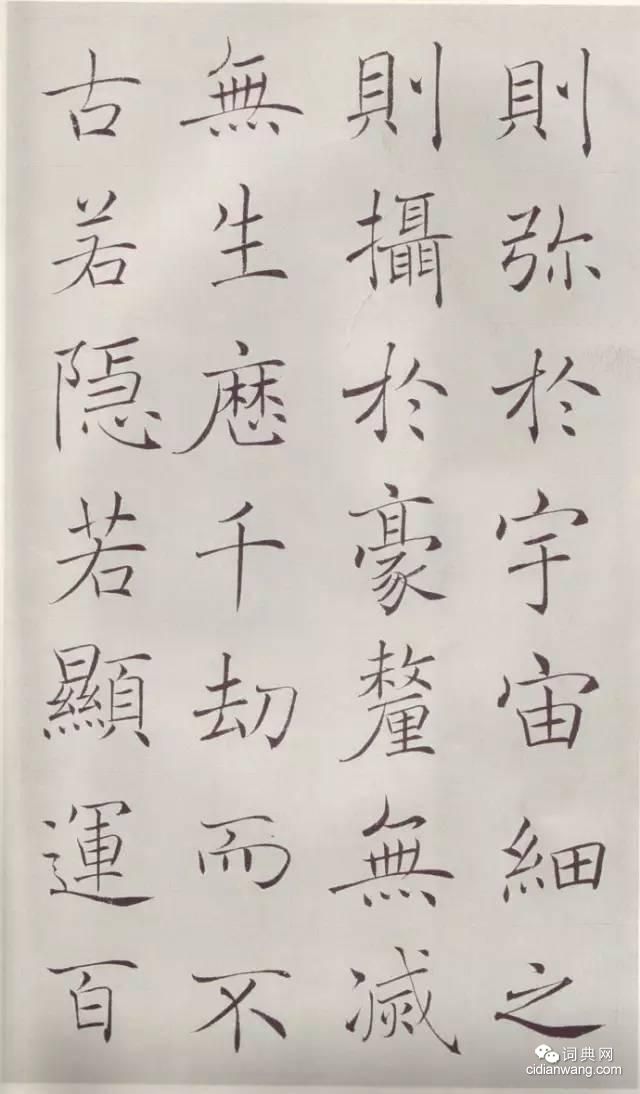 則弥於宇宙細之
則攝於豪釐無滅
無生歷千劫而不
古若隠若顯運百
词典网
cidianwang.com